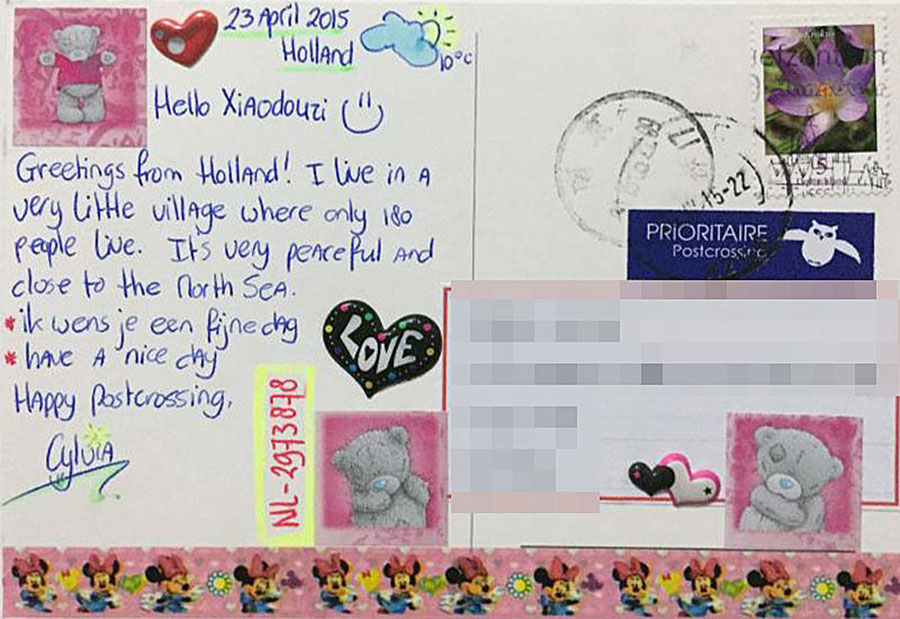 23 April 2015
Holland
10°C
Hello Xiaodouzi
Greetings from Holland! I live in a
very little village where only 180
people live. It's very peaceful and
close to the North Sea.
* ik wens je een fijne dag
* have a nice day
Happy Postcrossing,
Cylvia
LOVE
NL-2973878
15-22
PRIORITAIRE
Postcrossing